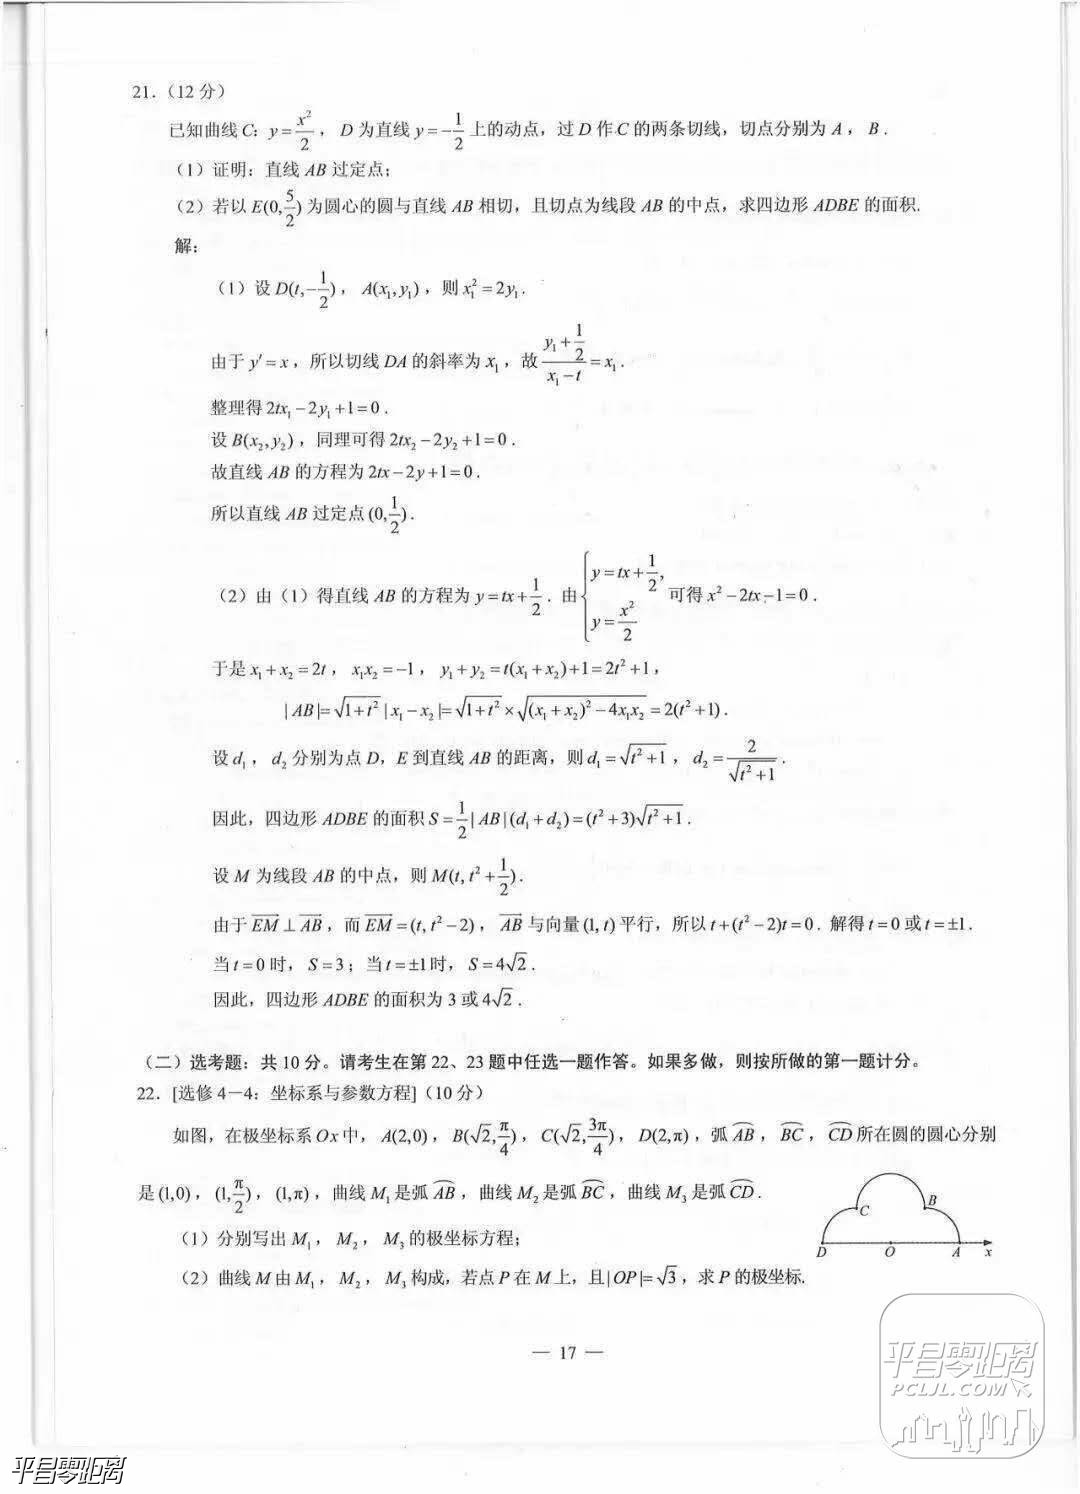 21.（12 分）
已知曲线 C: y = x²/2 ， D 为直线 y = -1/2 上的动点，过 D 作 C 的两条切线，切点分别为 A ， B .
（1）证明：直线 AB 过定点；
（2）若以 E(0, 5/2) 为圆心的圆与直线 AB 相切，且切点为线段 AB 的中点，求四边形 ADBE 的面积.
解：
（1）设 D(t, -1/2) ， A(x₁, y₁) ，则 x₁² = 2y₁ .
由于 y′ = x ，所以切线 DA 的斜率为 x₁ ，故 (y₁ + 1/2)/(x₁ - t) = x₁ .
整理得 2tx₁ - 2y₁ + 1 = 0 .
设 B(x₂, y₂) ，同理可得 2tx₂ - 2y₂ + 1 = 0 .
故直线 AB 的方程为 2tx - 2y + 1 = 0 .
所以直线 AB 过定点 (0, 1/2) .
（2）由（1）得直线 AB 的方程为 y = tx + 1/2 . 由 { y = tx + 1/2, y = x²/2 可得 x² - 2tx - 1 = 0 .
于是 x₁ + x₂ = 2t ， x₁x₂ = -1 ， y₁ + y₂ = t(x₁ + x₂) + 1 = 2t² + 1 ，
|AB| = √(1+t²) |x₁ - x₂| = √(1+t²) × √((x₁ + x₂)² - 4x₁x₂) = 2(t² + 1) .
设 d₁ ， d₂ 分别为点 D，E 到直线 AB 的距离，则 d₁ = √(t² + 1) ， d₂ = 2/√(t² + 1) .
因此，四边形 ADBE 的面积 S = 1/2 |AB| (d₁ + d₂) = (t² + 3)√(t² + 1) .
设 M 为线段 AB 的中点，则 M(t, t² + 1/2) .
由于 EM⃗ ⊥ AB⃗ ，而 EM⃗ = (t, t² - 2) ， AB⃗ 与向量 (1, t) 平行，所以 t + (t² - 2)t = 0 . 解得 t = 0 或 t = ±1 .
当 t = 0 时， S = 3 ；当 t = ±1 时， S = 4√2 .
因此，四边形 ADBE 的面积为 3 或 4√2 .
（二）选考题：共 10 分。请考生在第 22、23 题中任选一题作答。如果多做，则按所做的第一题计分。
22. [选修 4－4：坐标系与参数方程]（10 分）
如图，在极坐标系 Ox 中， A(2,0) ， B(√2, π/4) ， C(√2, 3π/4) ， D(2,π) ，弧 A͡B ， B͡C ， C͡D 所在圆的圆心分别
是 (1,0) ， (1, π/2) ， (1,π) ，曲线 M₁ 是弧 A͡B ，曲线 M₂ 是弧 B͡C ，曲线 M₃ 是弧 C͡D .
（1）分别写出 M₁ ， M₂ ， M₃ 的极坐标方程；
（2）曲线 M 由 M₁ ， M₂ ， M₃ 构成，若点 P 在 M 上，且 |OP| = √3 ，求 P 的极坐标.
C B
D O A x
— 17 —
平昌零距离
PCLJL.COM
平昌零距离